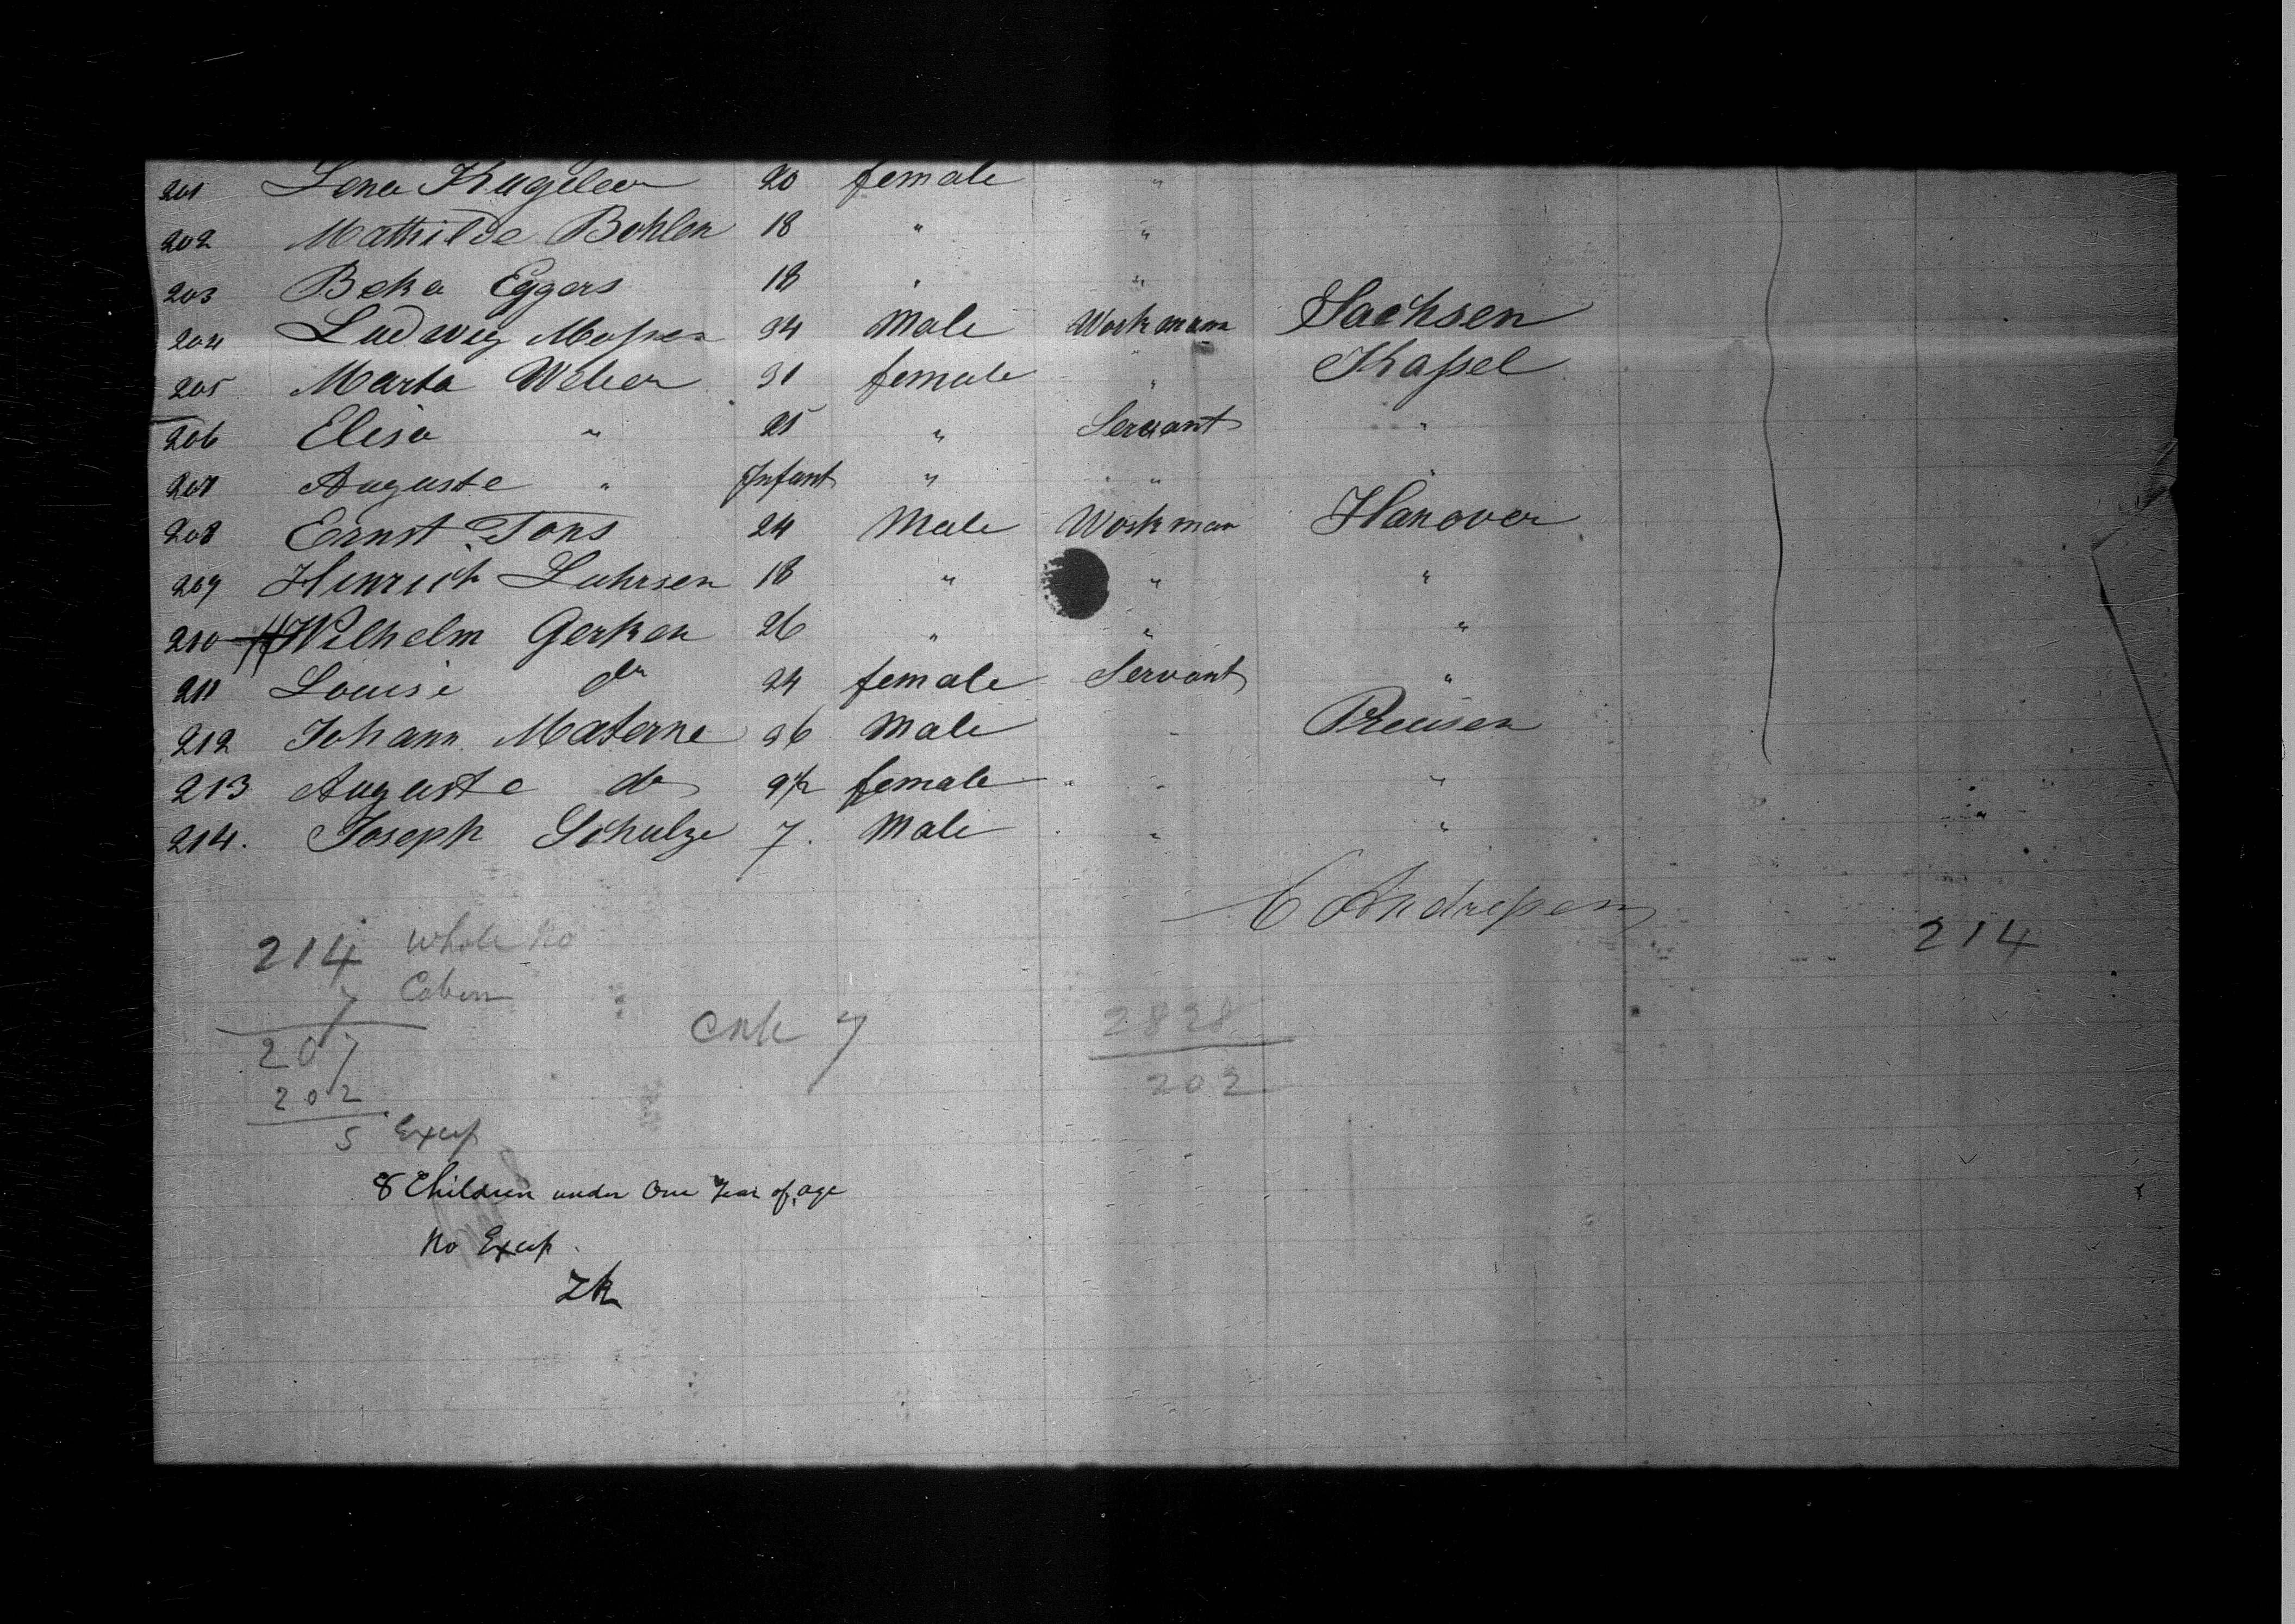 201 Lena Kugeler 20 female "
202 Mathilde Bohlen 18 " "
203 Beka Eggers 18 " "
204 Ludwig 34 Male Workman Sachsen
205 Marta Weber 31 female " Kaßel
206 Elisa " 25 " Servant "
207 Auguste " Infant " " "
208 Ernst Tons 24 Male Workman Hanover
209 Hinrich Luhrsen 18 " " "
210 Wilhelm Gerken 26 " " "
211 Louise do 24 female Servant "
212 Johann Materne 36 Male " Preusen
213 Auguste do 9½ female " "
214. Joseph Schulze 7. Male " "
C Andreßen
214 Whole No 214
7 Cabin
207 7 2828
202 202
5 Excep
8 Children under One Year of age
No Excep.